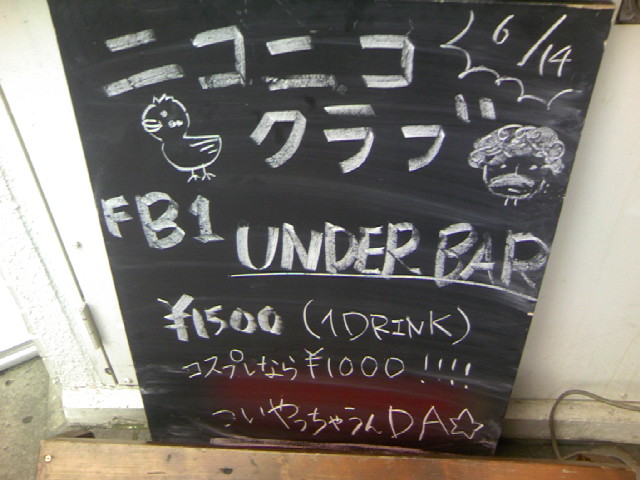 ニコニコ 6/14
クラブ
FB1
UNDER BAR
¥1500 (1DRINK)
コスプレなら¥1000 !!!!
こいやっちゃうんDA☆